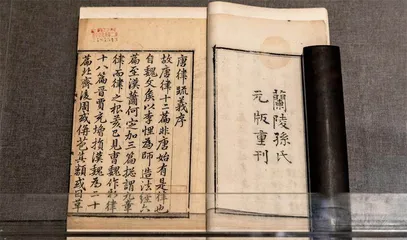 蘭陵孫氏
元版重刊
唐律疏義序
故唐律十二篇非唐始有是律也
自魏文矦以李悝為師造法經六
篇至漢蕭何定加三篇摠謂九章
律而律之根荄已見曹魏作新律
十八篇晉賈充增損漢魏為二十
篇北齊後周或併苞其類或因革